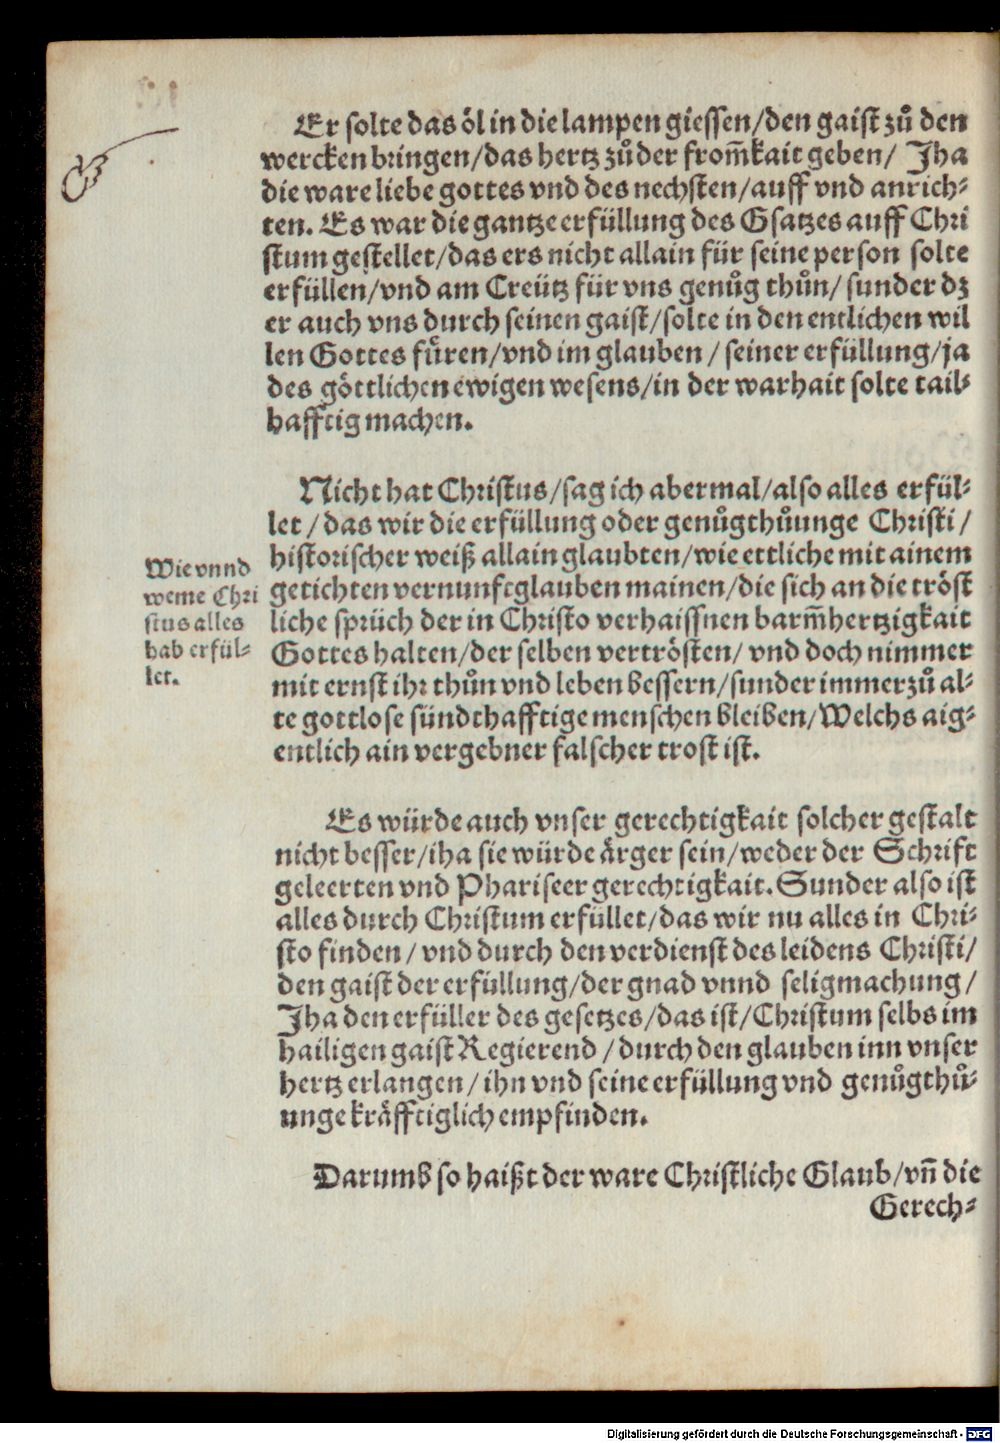 Er solte das öl in die lampen giessen/den gaist zů den
wercken bringen/das hertz zů der from̃kait geben/ Jha
die ware liebe gottes vnd des nechsten/auff vnd anrich⸗
ten. Es war die gantze erfüllung des Gsatzes auff Chri
stum gestellet/das ers nicht allain für seine person solte
erfüllen/vnd am Creütz für vns genůg thůn/ sunder dz
er auch vns durch seinen gaist/solte in den entlichen wil
len Gottes fůren/vnd im glauben / seiner erfüllung/ja
des göttlichen ewigen wesens/in der warhait solte tail⸗
hafftig machen.
Nicht hat Christus/sag ich abermal/also alles erfül⸗
let / das wir die erfüllung oder genůgthůunge Christi /
historischer weiß allain glaubten/wie ettliche mit ainem
getichten vernunftglauben mainen/die sich an die tröst
liche sprüch der in Christo verhaissnen barm̃hertzigkait
Gottes halten/der selben vertrösten/ vnd doch nimmer
mit ernst ihr thůn vnd leben bessern/sunder immerzů al⸗
te gottlose sündthafftige menschen bleiben/Welchs aig⸗
entlich ain vergebner falscher trost ist.
Wie vnnd
weme Chri
stus alles
hab erfül⸗
let.
Es würde auch vnser gerechtigkait solcher gestalt
nicht besser/iha sie würde ärger sein/weder der Schrift
geleerten vnd Phariseer gerechtigkait. Sunder also ist
alles durch Christum erfüllet/das wir nu alles in Chri⸗
sto finden / vnd durch den verdienst des leidens Christi/
den gaist der erfüllung/der gnad vnnd seligmachung /
Jha den erfüller des gesetzes/das ist/Christum selbs im
hailigen gaist Regierend / durch den glauben inn vnser
hertz erlangen / ihn vnd seine erfüllung vnd genůgthů⸗
unge kräfftiglich empfinden.
Darumb so haißt der ware Christliche Glaub/vñ die
Gerech⸗
Digitalisierung gefördert durch die Deutsche Forschungsgemeinschaft - DFG